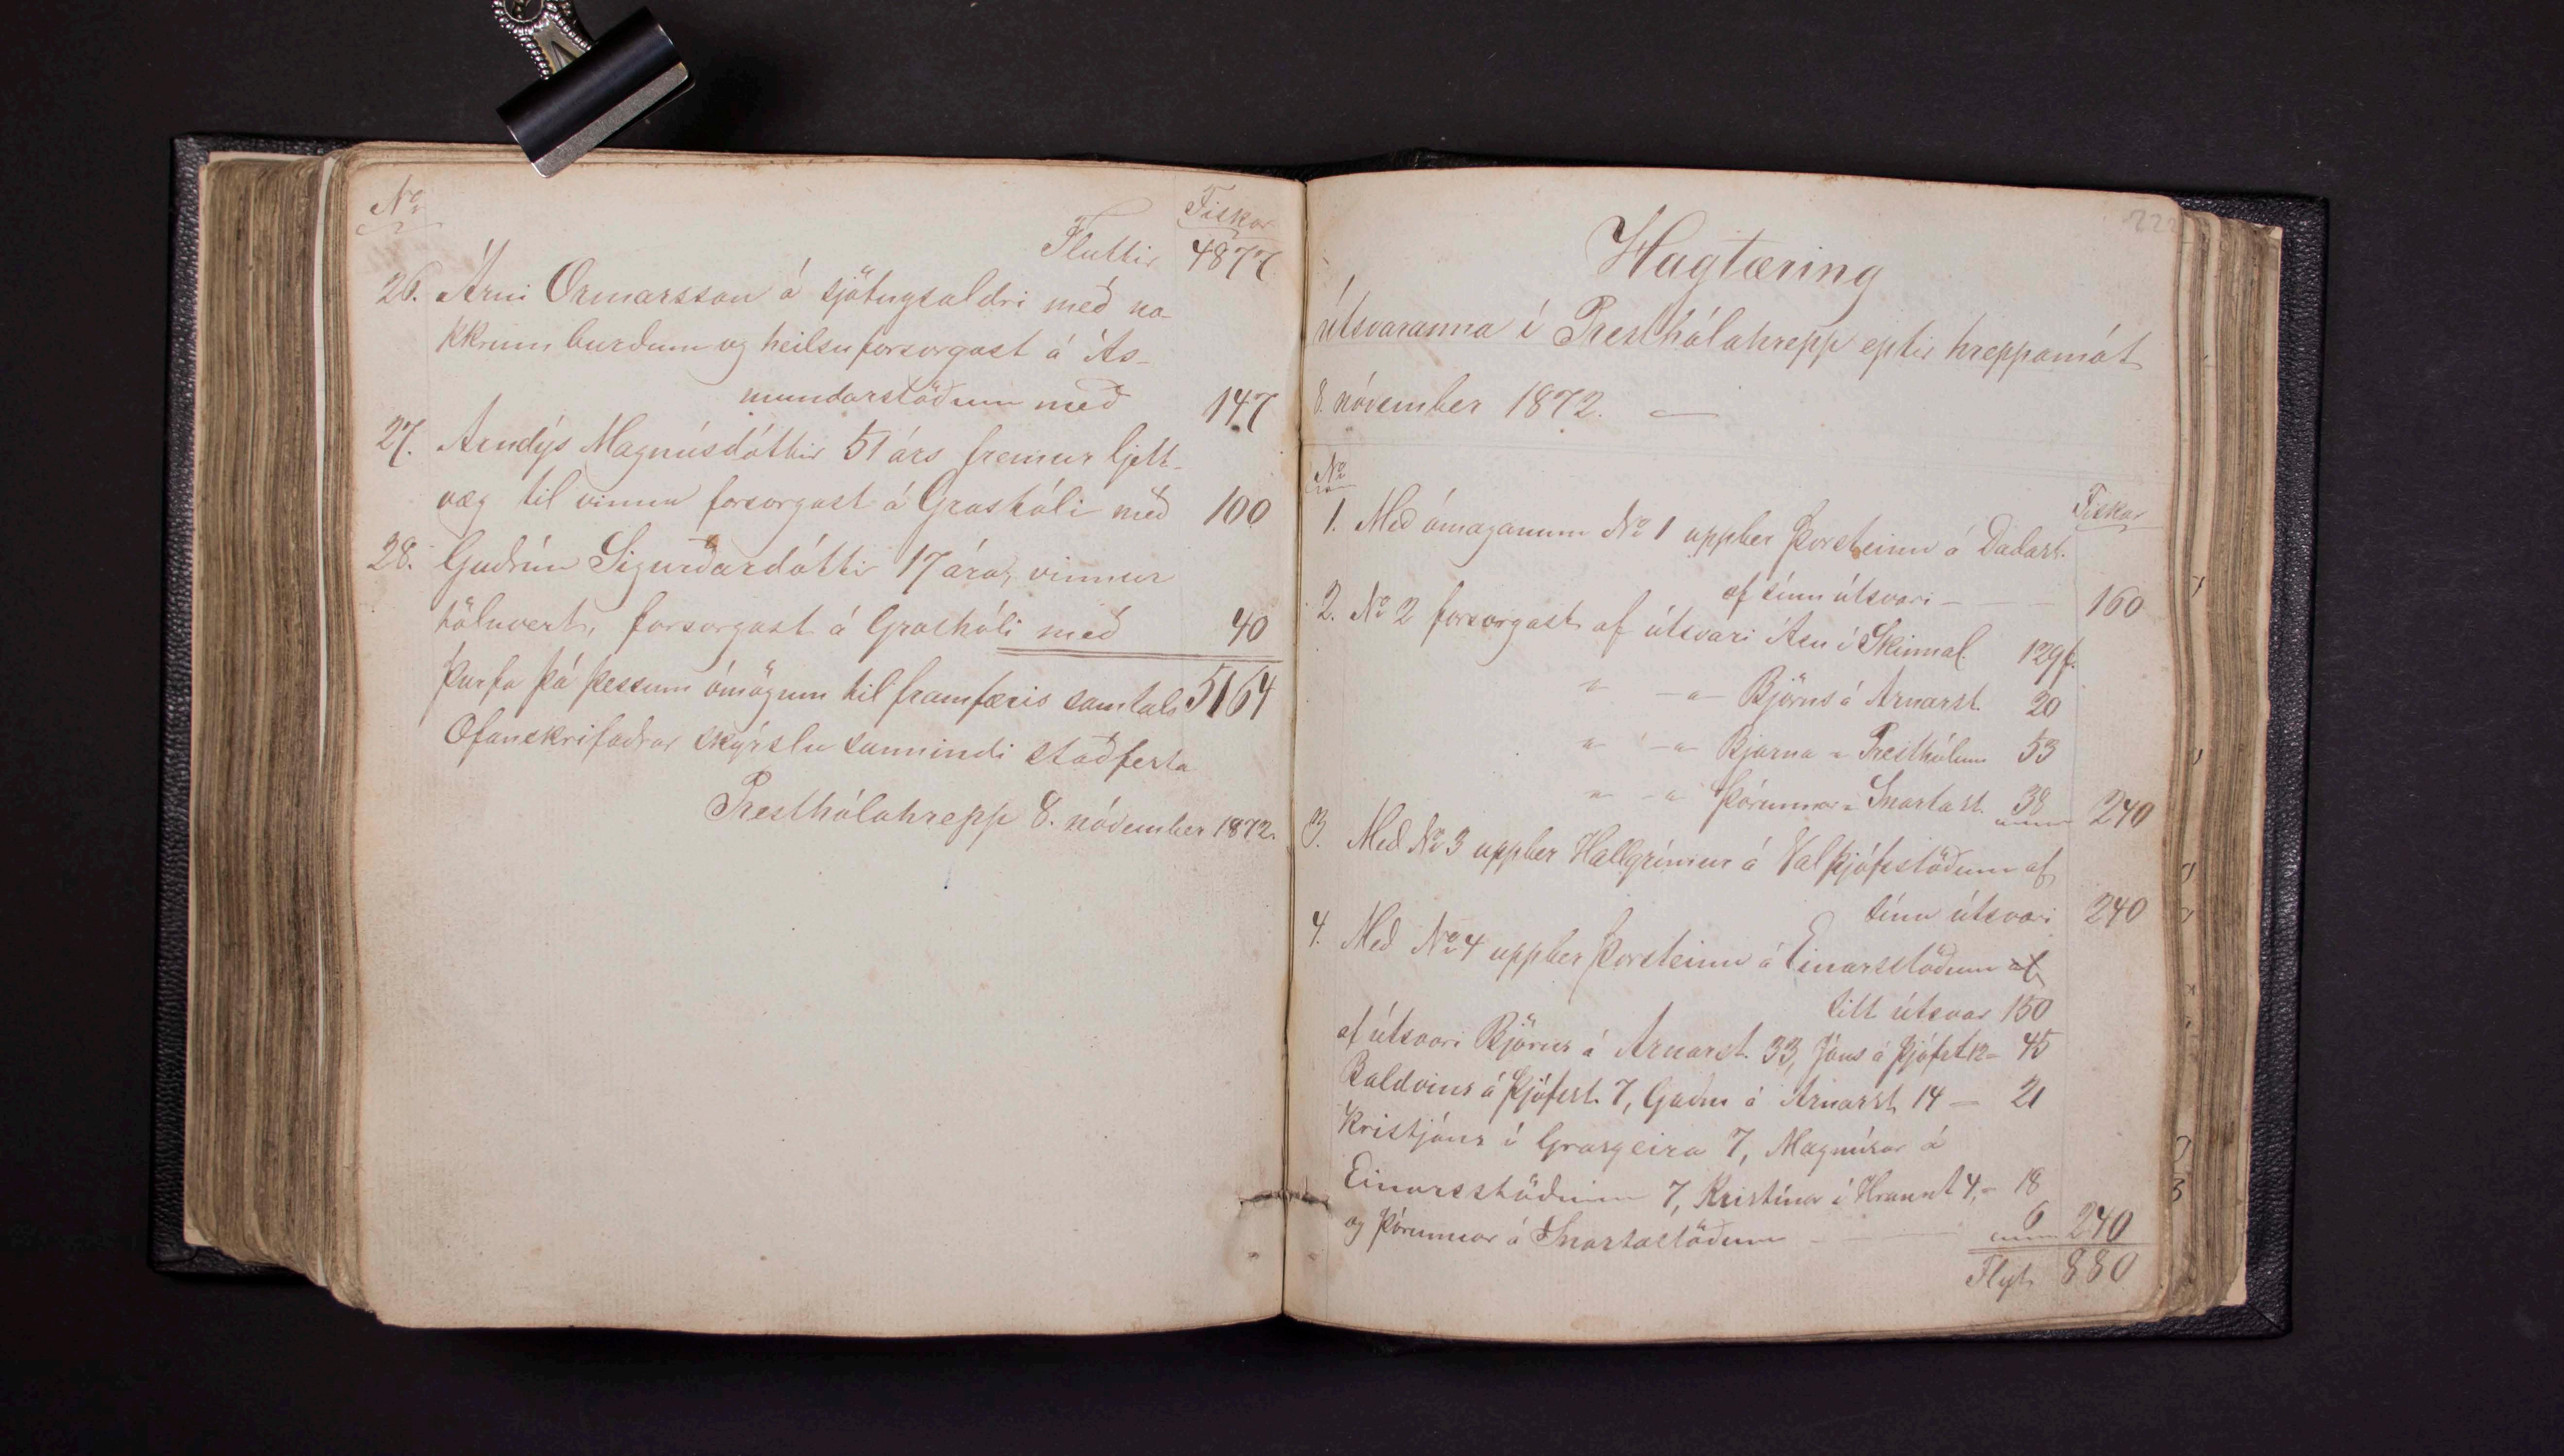 No
Fiskar
Fluttir 4877
26. Árni Ormarsson á sjötugsaldri með no-
kkrum burdum og heilsu forsorgast á Ás-
mundarstöðum með 147
27. Arndýs Magnúsdóttir 51 árs fremur ljett-
væg til vinnu forsorgast á Grashóli með 100
28. Guðrún Sigurðardóttir 17 ára, vinnur
töluvert, forsorgast á Grashóli með 40
þurfa þá þessum ómögum til framfæris samtals 5164
Ofanskrifaðrar skýrslu sannindi staðfesta
Presthólahrepp 8. nóvember 1872.
222
Hagtæring
útsvaranna í Presthólahrepp eptir hreppamót
8. nóvember 1872. —
No
Fiskar
1. Með ómaganum No 1 uppber Þorsteinn á Daðast.
af sínu útsvari — 160
2. No 2 forsorgast af útsvari Ásu í Skinnal. 129 f.
" —"— Björns á Arnarst. 20
" —"— Bjarna " Presthólum 53
" —"— Þórunnar " Snartast. 38 240
3. Með No 3 uppber Hallgrímur á Valþjófsstöðum af
sínu útsvari 240
4. Með No 4 uppber Þorsteinn á Einarsstöðum af
sitt útsvar 150
af útsvari Björns á Arnarst. 33, Jóns á Þjófst 12 — 45
Baldvins á Þjófsst. 7, Guðm á Arnarst. 14 — 21
Kristjáns í Grasgeira 7, Magnúsar á
Einarsstöðum 7, Kristínar í Hraunt 4, — 18
og Þórunnar á Snartastöðum — 6 240
Flyt 880